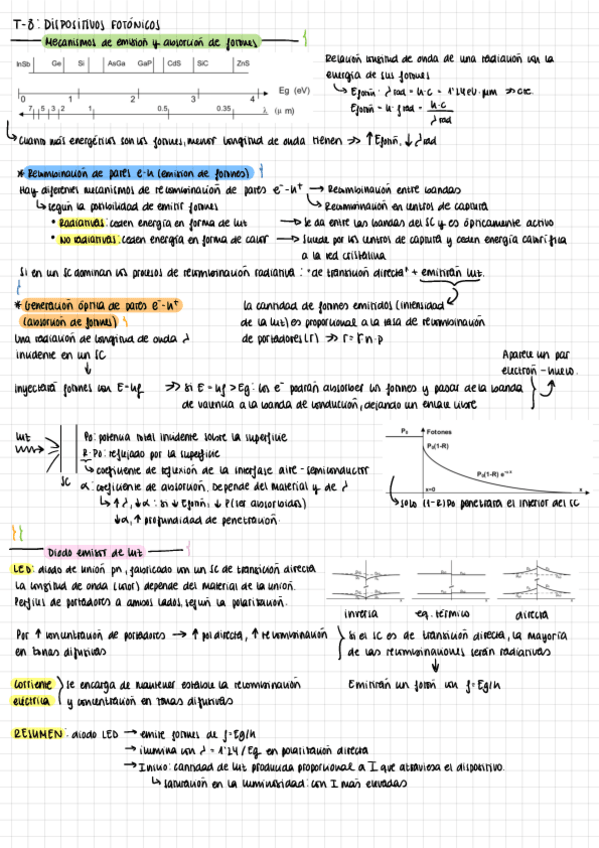 T-8: DISPOSITIVOS FOTÓNICOS
Mecanismos de emisión y absorción de fotones
InSb Ge Si AsGa GaP CdS SiC ZnS
Eg (eV)
0 1 2 3 4
7 5 3 2 1 0.5 0.35 λ (μ m)
Relación longitud de onda de una radiación con la
energía de sus fotones
↳ Efotón · λrad = h·c = 1'24 eV·μm ⇒ cte
Efotón = h·frad = h·c / λrad
↳ Cuanto más energéticos son los fotones, menor longitud de onda tienen ⇒ ↑Efotón, ↓λrad
* Recombinación de pares e-h (emisión de fotones)
Hay diferentes mecanismos de recombinación de pares e⁻-h⁺ → Recombinación entre bandas
↳ Recombinación en centros de captura
↳ según la posibilidad de emitir fotones
• Radiativas: ceden energía en forma de luz → Se da entre las bandas del SC y es ópticamente activo
• No radiativas: ceden energía en forma de calor → Sucede por los centros de captura y ceden energía calorífica
a la red cristalina
Si en un SC dominan los procesos de recombinación radiativa: "de transición directa" + emitirán luz.
* Generación óptica de pares e⁻-h⁺
(absorción de fotones)
La cantidad de fotones emitidos (intensidad
de la luz) es proporcional a la tasa de recombinación
de portadores (r) ⇒ r = r n·p
Una radiación de longitud de onda λ
incidente en un SC
↓
Inyectará fotones con E=hf ⇒ Si E=hf > Eg: los e⁻ podrán absorber los fotones y pasar de la banda
de valencia a la banda de conducción, dejando un enlace libre
Aparece un par
electrón-hueco.
luz
SC
Po: potencia total incidente sobre la superficie
R·Po: reflejado por la superficie
↳ coeficiente de reflexión de la interfase aire-semiconductor
α: coeficiente de absorción. Depende del material y de λ
↳ ↑λ, ↓α: si ↓Efotón, ↓P(ser absorbidos)
↓α, ↑profundidad de penetración.
P₀ Fotones
P₀(1-R)
P₀(1-R) e^-αx
x=0 x
↳ Solo (1-R)Po penetrará el interior del SC
Diodo emisor de luz
LED: diodo de unión pn, fabricado con un SC de transición directa
La longitud de onda (color) depende del material de la unión.
Perfiles de portadores a ambos lados, según la polarización.
inversa eq. térmico directa
Por ↑ concentración de portadores → ↑ pol directa, ↑ recombinación
en zonas difusivas
Si el SC es de transición directa, la mayoría
de las recombinaciones serán radiativas
↓
Emitirán un fotón con f=Eg/h
Corriente
eléctrica
Se encarga de mantener estable la recombinación
y concentración en zonas difusivas
RESUMEN: diodo LED → emite fotones de f=Eg/h
→ ilumina con λ = 1'24/Eg en polarización directa
→ Inicio: cantidad de luz producida proporcional a I que atraviesa el dispositivo.
↳ saturación en la luminosidad: con I más elevadas